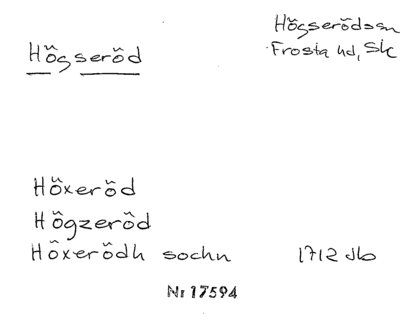 Högserödssn
Frosta hd, Sk
Högseröd
Höxeröd
Högzeröd
Höxerödh sochn 1712 Jb
Nr 17594